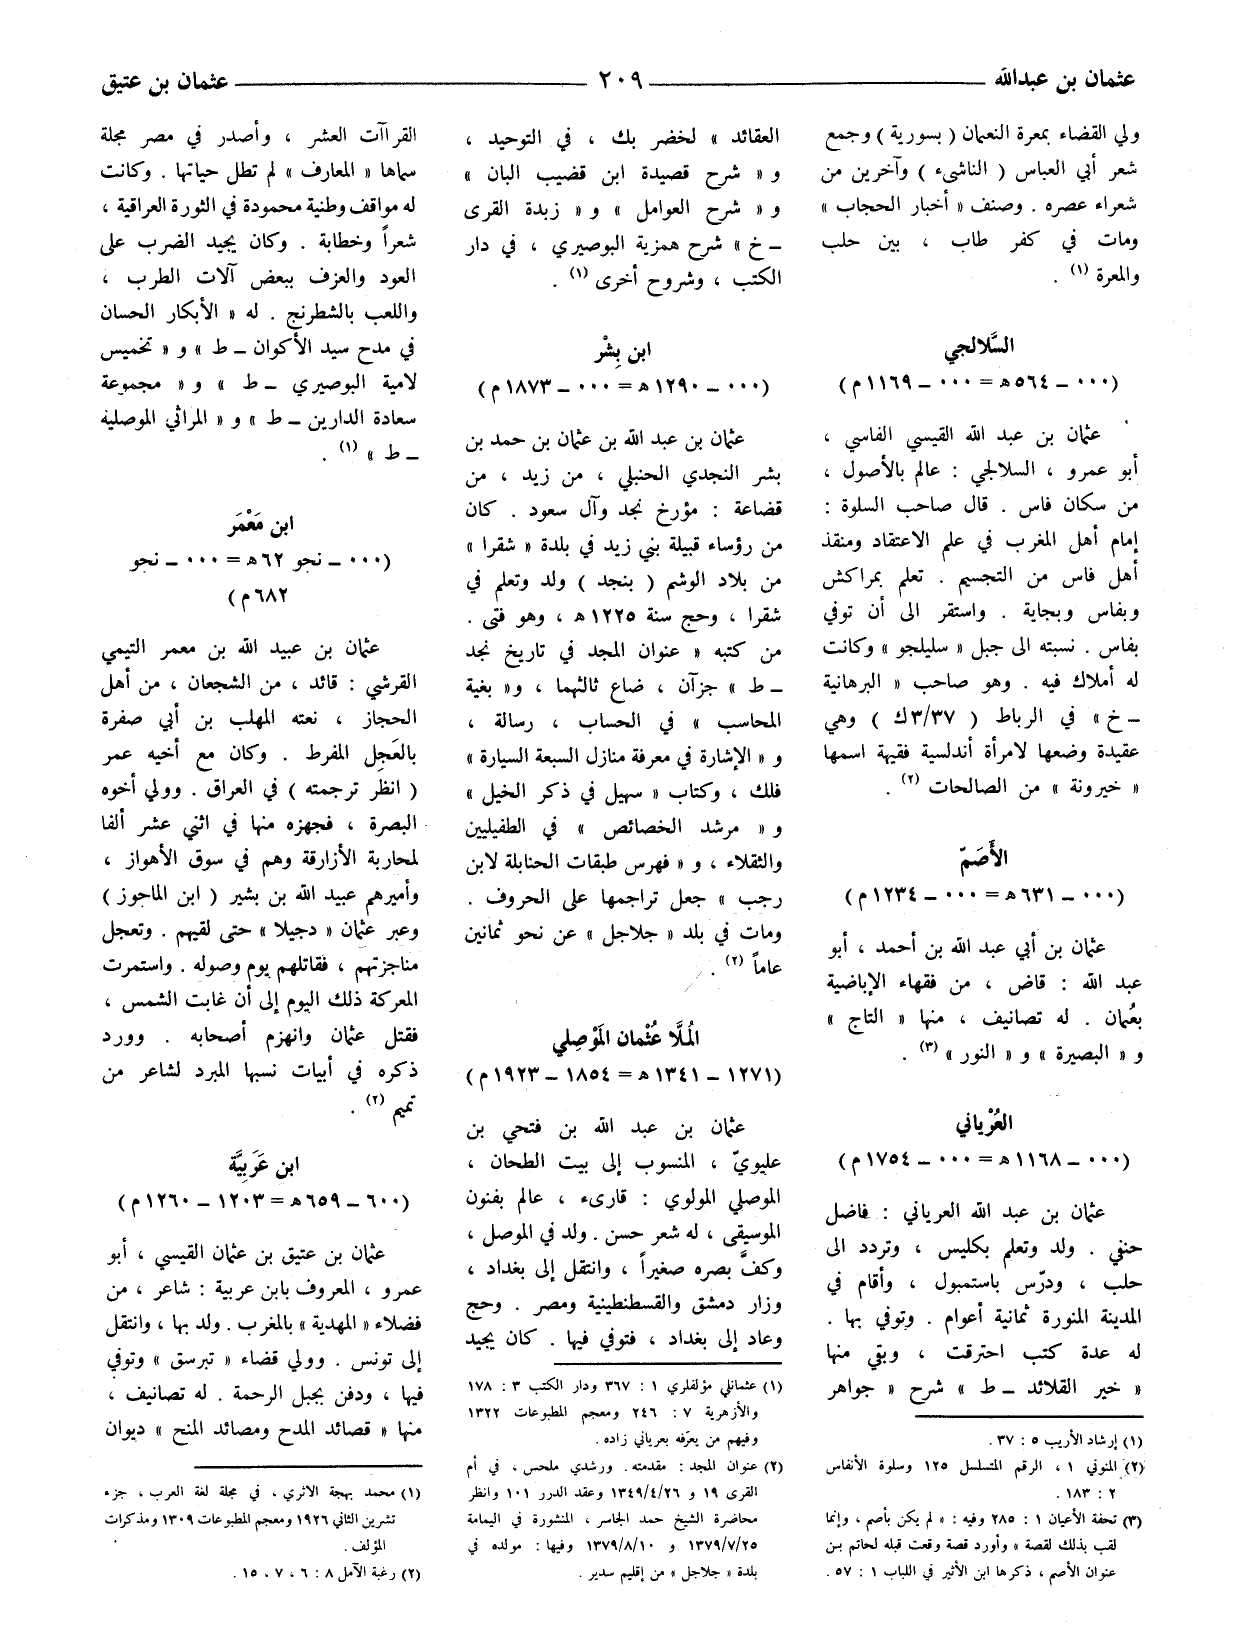 عثمان بن عبدالله ٢٠٩ عثمان بن عتيق
ولي القضاء بمعرة النعمان ( بسورية ) وجمع
شعر أبي العباس ( الناشىء ) وآخرين من
شعراء عصره . وصنف « أخبار الحجاب »
ومات في كفر طاب ، بين حلب
والمعرة (١) .
السَّلالجي
(٠٠٠ ـ ٥٦٤ه = ٠٠٠ ـ ١١٦٩م)
عثمان بن عبد الله القيسي الفاسي ،
أبو عمرو ، السلالجي : عالم بالأصول ،
من سكان فاس . قال صاحب السلوة :
إمام أهل المغرب في علم الاعتقاد ومنقذ
أهل فاس من التجسيم . تعلم بمراكش
وبفاس وبجاية . واستقر الى أن توفي
بفاس . نسبته الى جبل « سليلجو » وكانت
له أملاك فيه . وهو صاحب « البرهانية
ـ خ » في الرباط ( ٣/٣٧ك ) وهي
عقيدة وضعها لامرأة أندلسية فقيهة اسمها
« خيرونة » من الصالحات (٢) .
الأَصَمّ
(٠٠٠ ـ ٦٣١ه = ٠٠٠ ـ ١٢٣٤م)
عثمان بن أبي عبد الله بن أحمد ، أبو
عبد الله : قاض ، من فقهاء الإباضية
بعُمان . له تصانيف ، منها « التاج »
و « البصيرة » و « النور » (٣) .
العُرْياني
(٠٠٠ ـ ١١٦٨ه = ٠٠٠ ـ ١٧٥٤م)
عثمان بن عبد الله العرياني : فاضل
حنفي . ولد وتعلم بكليس ، وتردد الى
حلب ، ودرّس باستمبول ، وأقام في
المدينة المنورة ثمانية أعوام . وتوفي بها .
له عدة كتب احترقت ، وبقي منها
« خير القلائد ـ ط » شرح « جواهر
(١) إرشاد الأريب ٥ : ٣٧ .
(٢) المنوني ١ ، الرقم المتسلسل ١٢٥ وسلوة الأنفاس
٢ : ١٨٣ .
(٣) تحفة الأعيان ١ : ٢٨٥ وفيه : « لم يكن بأصم ، وإنما
لقب بذلك لقصة » وأورد قصة وقعت قبله لحاتم بن
عنوان الأصم ، ذكرها ابن الأثير في اللباب ١ : ٥٧ .
العقائد » لخضر بك ، في التوحيد ،
و « شرح قصيدة ابن قضيب البان »
و « شرح العوامل » و « زبدة القرى
ـ خ » شرح همزية البوصيري ، في دار
الكتب ، وشروح أخرى (١) .
ابن بِشْر
(٠٠٠ ـ ١٢٩٠ه = ٠٠٠ ـ ١٨٧٣م)
عثمان بن عبد الله بن عثمان بن حمد بن
بشر النجدي الحنبلي ، من زيد ، من
قضاعة : مؤرخ نجد وآل سعود . كان
من رؤساء قبيلة بني زيد في بلدة « شقرا »
من بلاد الوشم ( بنجد ) ولد وتعلم في
شقرا ، وحج سنة ١٢٢٥ه ، وهو فتى .
من كتبه « عنوان المجد في تاريخ نجد
ـ ط » جزآن ، ضاع ثالثهما ، و« بغية
المحاسب » في الحساب ، رسالة ،
و « الإشارة في معرفة منازل السبعة السيارة »
فلك ، وكتاب « سهيل في ذكر الخيل »
و « مرشد الخصائص » في الطفيليين
والثقلاء ، و « فهرس طبقات الحنابلة لابن
رجب » جعل تراجمها على الحروف .
ومات في بلد « جلاجل » عن نحو ثمانين
عاماً (٢) .
المُلَّا عُثْمان المَوْصِلي
(١٢٧١ ـ ١٣٤١ه = ١٨٥٤ ـ ١٩٢٣م)
عثمان بن عبد الله بن فتحي بن
عليويّ ، المنسوب إلى بيت الطحان ،
الموصلي المولوي : قارىء ، عالم بفنون
الموسيقى ، له شعر حسن . ولد في الموصل ،
وكفَّ بصره صغيراً ، وانتقل إلى بغداد ،
وزار دمشق والقسطنطينية ومصر . وحج
وعاد إلى بغداد ، فتوفي فيها . كان يجيد
(١) عثمانلي مؤلفلري ١ : ٣٦٧ ودار الكتب ٣ : ١٧٨
والأزهرية ٧ : ٢٤٦ ومعجم المطبوعات ١٣٢٢
وفيهم من يعرّفه بعرياني زاده .
(٢) عنوان المجد : مقدمته . ورشدي ملحس ، في أم
القرى ١٩ و ١٣٤٩/٤/٢٦ وعقد الدرر ١٠١ وانظر
محاضرة الشيخ حمد الجاسر ، المنشورة في اليمامة
١٣٧٩/٧/٢٥ و ١٣٧٩/٨/١٠ وفيها : مولده في
بلدة « جلاجل » من إقليم سدير .
القراآت العشر ، وأصدر في مصر مجلة
سماها « المعارف » لم تطل حياتها . وكانت
له مواقف وطنية محمودة في الثورة العراقية ،
شعراً وخطابة . وكان يجيد الضرب على
العود والعزف ببعض آلات الطرب ،
واللعب بالشطرنج . له « الأبكار الحسان
في مدح سيد الأكوان ـ ط » و « تخميس
لامية البوصيري ـ ط » و « مجموعة
سعادة الدارين ـ ط » و « المراثي الموصلية
ـ ط » (١) .
ابن مَعْمَر
(٠٠٠ ـ نحو ٦٢ه = ٠٠٠ ـ نحو
٦٨٢م)
عثمان بن عبيد الله بن معمر التيمي
القرشي : قائد ، من الشجعان ، من أهل
الحجاز ، نعته المهلب بن أبي صفرة
بالعَجِل المفرط . وكان مع أخيه عمر
( انظر ترجمته ) في العراق . وولي أخوه
البصرة ، فجهزه منها في اثني عشر ألفا
لمحاربة الأزارقة وهم في سوق الأهواز ،
وأميرهم عبيد الله بن بشير ( ابن الماجوز )
وعبر عثمان « دجيلا » حتى لقيهم . وتعجل
مناجزتهم ، فقاتلهم يوم وصوله . واستمرت
المعركة ذلك اليوم إلى أن غابت الشمس ،
فقتل عثمان وانهزم أصحابه . وورد
ذكره في أبيات نسبها المبرد لشاعر من
تميم (٢) .
ابن عَرَبِيَّة
(٦٠٠ ـ ٦٥٩ه = ١٢٠٣ ـ ١٢٦٠م)
عثمان بن عتيق بن عثمان القيسي ، أبو
عمرو ، المعروف بابن عربية : شاعر ، من
فضلاء « المهدية » بالمغرب . ولد بها ، وانتقل
إلى تونس . وولي قضاء « تبرسق » وتوفي
فيها ، ودفن بجبل الرحمة . له تصانيف ،
منها « قصائد المدح ومصائد المنح » ديوان
(١) محمد بهجة الاثري ، في مجلة لغة العرب ، جزء
تشرين الثاني ١٩٢٦ ومعجم المطبوعات ١٣٠٩ ومذكرات
المؤلف .
(٢) رغبة الآمل ٨ : ٦ ، ٧ ، ١٥ .